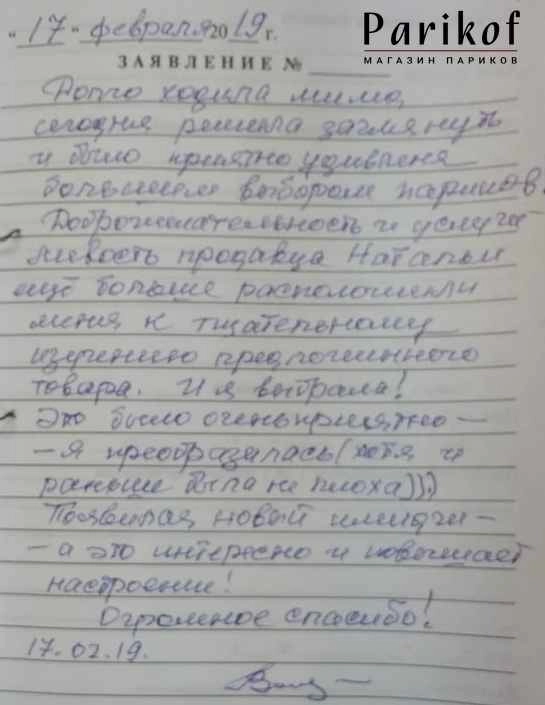 Parikof
МАГАЗИН ПАРИКОВ
"17" февраля 2019 г.
ЗАЯВЛЕНИЕ №
Долго ходила мимо,
сегодня решила заглянуть
и было приятно удивлена
большим выбором париков.
Доброжелательность и услужли-
ливость продавца Натальи
ещё больше расположили
меня к тщательному
изучению предложенного
товара. И я выбрала!
Это было очень приятно -
- Я преобразилась (хотя и
раньше была не плоха)))
Появился новый имидж -
- а это интересно и повышает
настроение!
Огромное спасибо!
17.02.19.